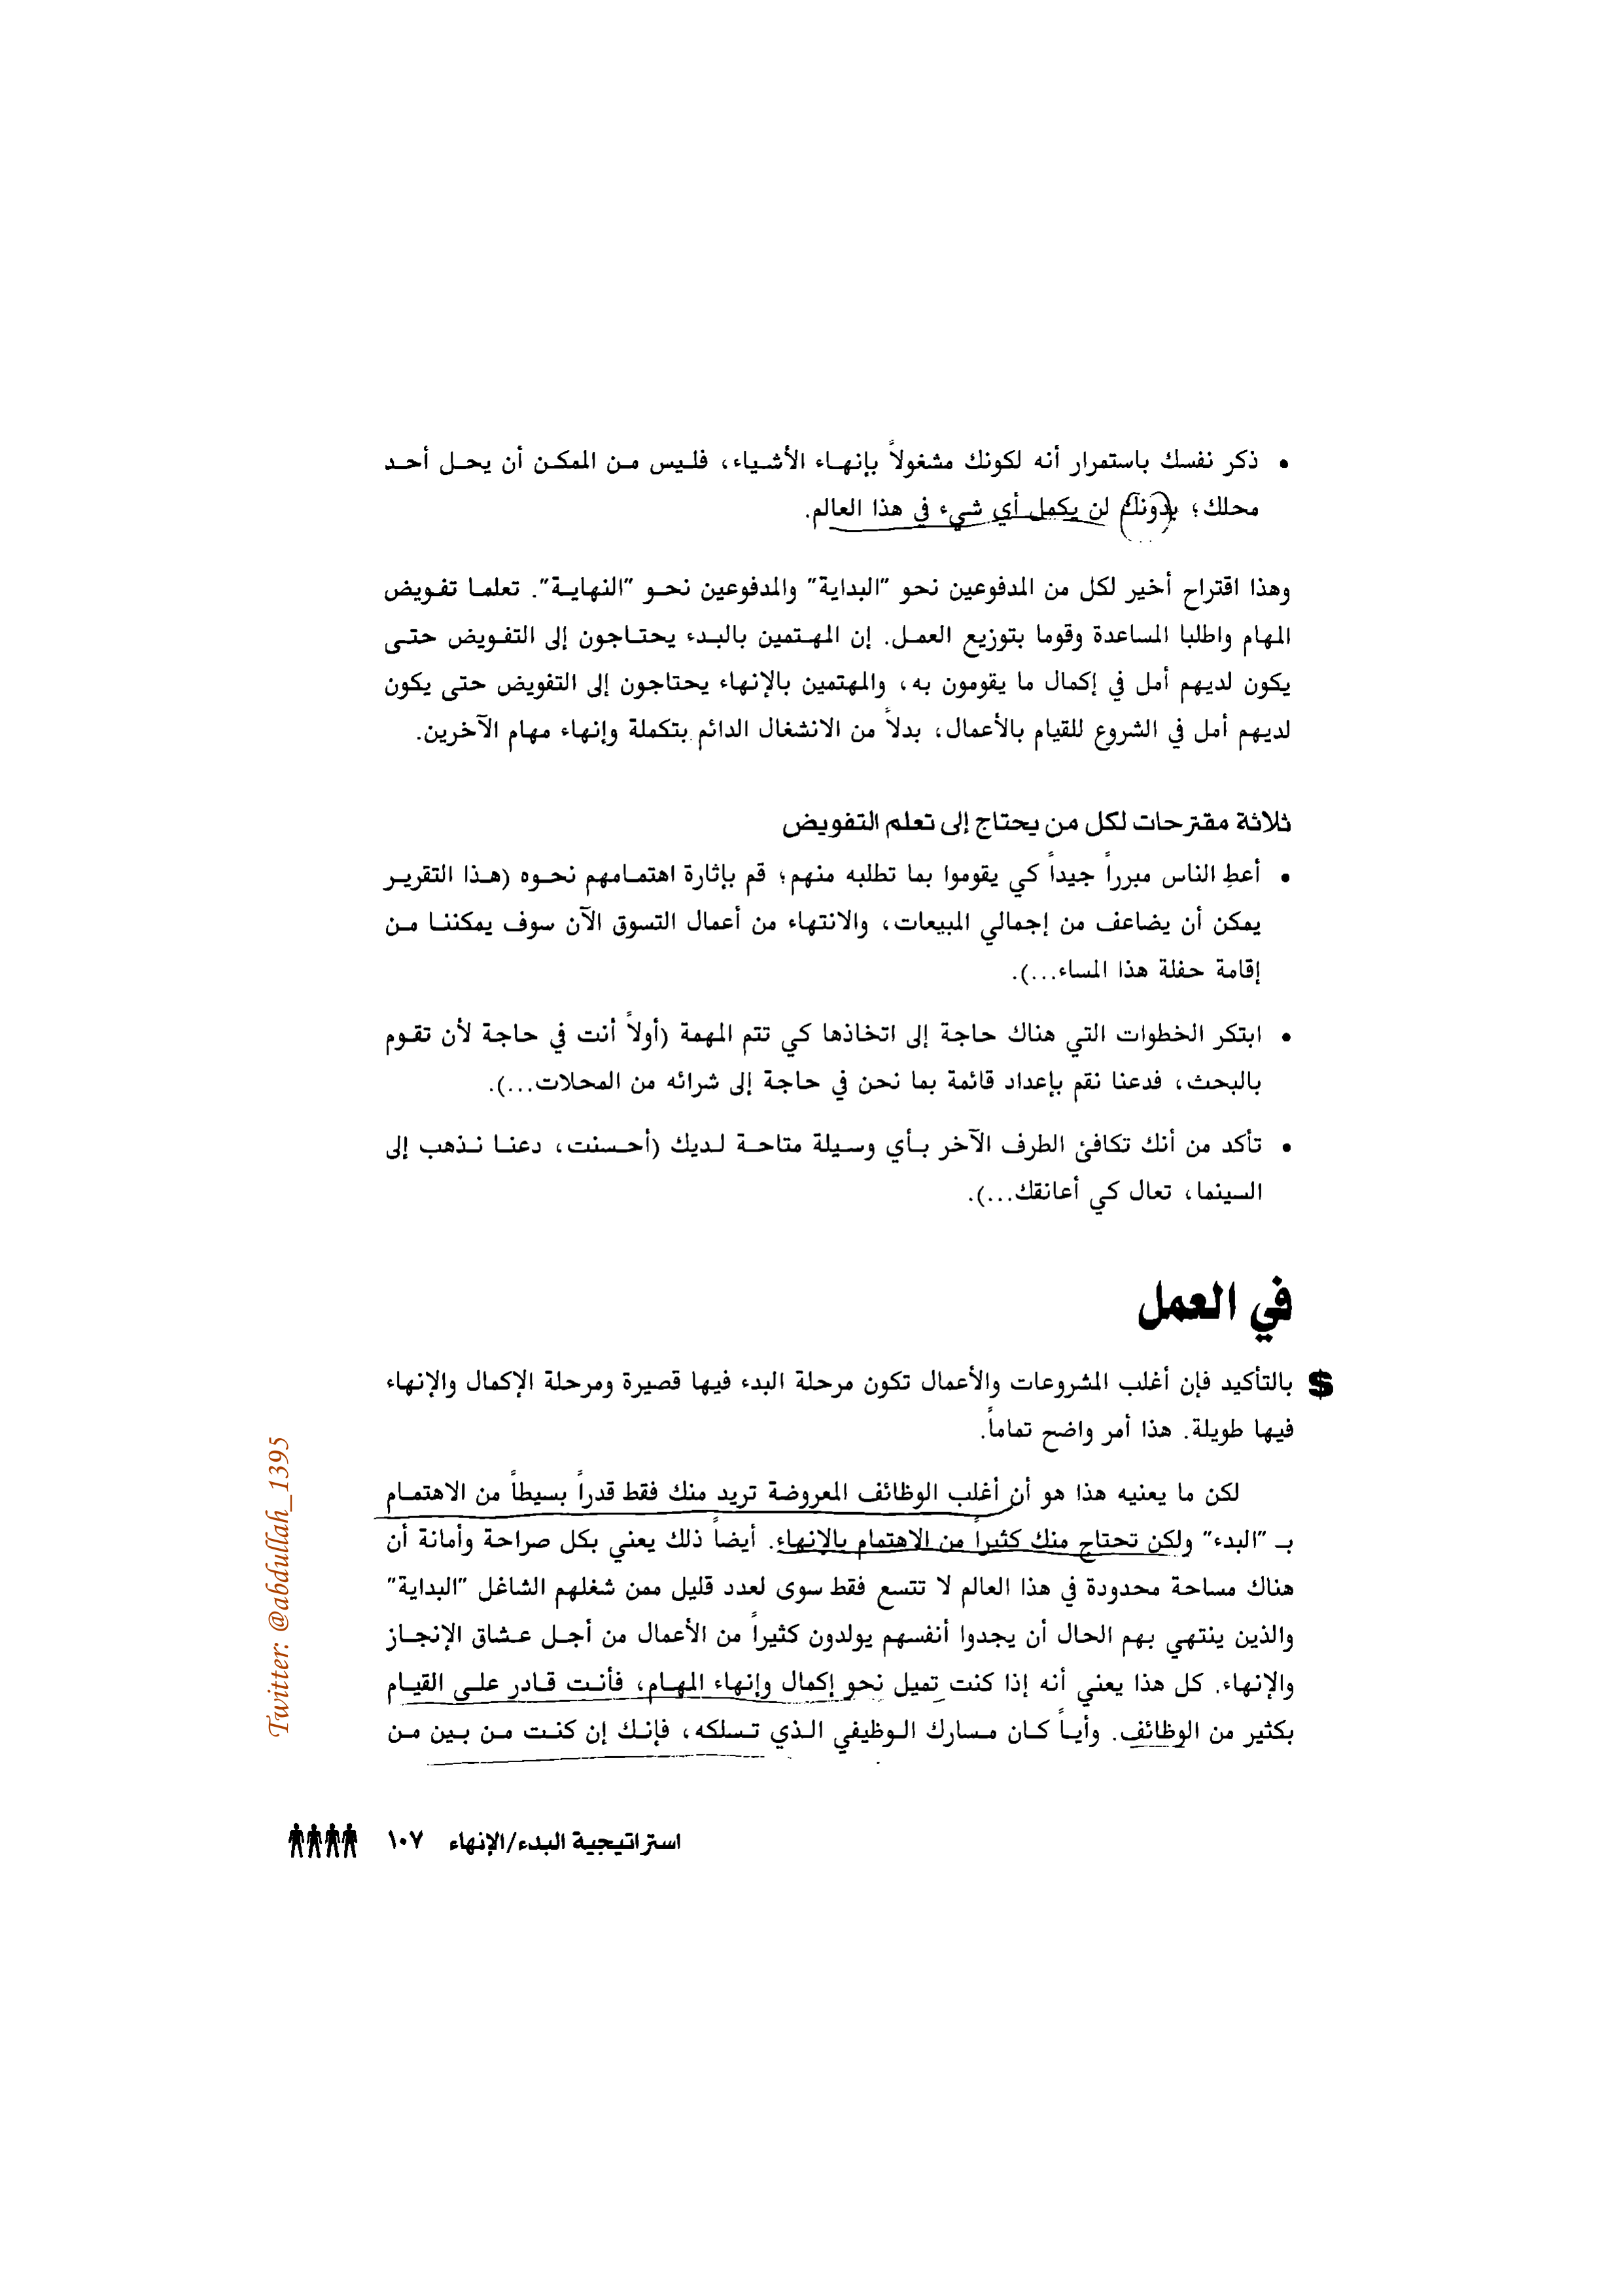 • ذكر نفسك باستمرار أنه لكونك مشغولاً بإنهاء الأشياء، فليس من الممكن أن يحل أحد
محلك؛ بدونك لن يكمل أي شيء في هذا العالم.
وهذا اقتراح أخير لكل من المدفوعين نحو "البداية" والمدفوعين نحو "النهاية". تعلما تفويض
المهام واطلبا المساعدة وقوما بتوزيع العمل. إن المهتمين بالبدء يحتاجون إلى التفويض حتى
يكون لديهم أمل في إكمال ما يقومون به، والمهتمين بالإنهاء يحتاجون إلى التفويض حتى يكون
لديهم أمل في الشروع للقيام بالأعمال، بدلاً من الانشغال الدائم بتكملة وإنهاء مهام الآخرين.
ثلاثة مقترحات لكل من يحتاج إلى تعلم التفويض
• أعطِ الناس مبرراً جيداً كي يقوموا بما تطلبه منهم؛ قم بإثارة اهتمامهم نحوه (هذا التقرير
يمكن أن يضاعف من إجمالي المبيعات، والانتهاء من أعمال التسوق الآن سوف يمكننا من
إقامة حفلة هذا المساء...).
• ابتكر الخطوات التي هناك حاجة إلى اتخاذها كي تتم المهمة (أولاً أنت في حاجة لأن تقوم
بالبحث، فدعنا نقم بإعداد قائمة بما نحن في حاجة إلى شرائه من المحلات...).
• تأكد من أنك تكافئ الطرف الآخر بأي وسيلة متاحة لديك (أحسنت، دعنا نذهب إلى
السينما، تعال كي أعانقك...).
في العمل
$ بالتأكيد فإن أغلب المشروعات والأعمال تكون مرحلة البدء فيها قصيرة ومرحلة الإكمال والإنهاء
فيها طويلة. هذا أمر واضح تماماً.
لكن ما يعنيه هذا هو أن أغلب الوظائف المعروضة تريد منك فقط قدراً بسيطاً من الاهتمام
بـ "البدء" ولكن تحتاج منك كثيراً من الاهتمام بالإنهاء. أيضاً ذلك يعني بكل صراحة وأمانة أن
هناك مساحة محدودة في هذا العالم لا تتسع فقط سوى لعدد قليل ممن شغلهم الشاغل "البداية"
والذين ينتهي بهم الحال أن يجدوا أنفسهم يولدون كثيراً من الأعمال من أجل عشاق الإنجاز
والإنهاء. كل هذا يعني أنه إذا كنت تميل نحو إكمال وإنهاء المهام، فأنت قادر على القيام
بكثير من الوظائف. وأياً كان مسارك الوظيفي الذي تسلكه، فإنك إن كنت من بين من
استراتيجية البدء/الإنهاء ١٠٧
Twitter: @abdullah_1395